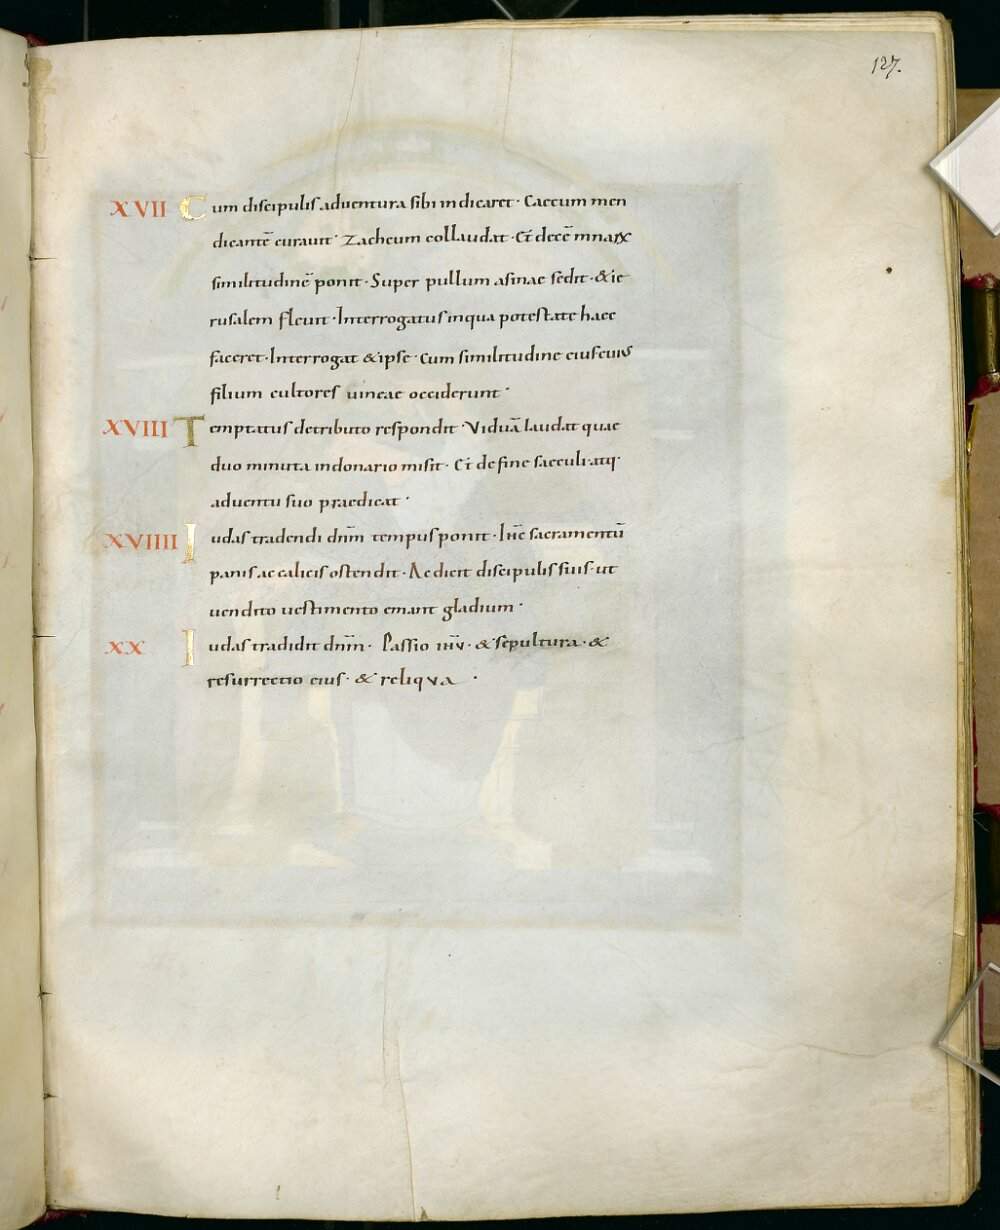 127.
XVII Cum discipulis aduentura sibi indicaret· Caecum men
dicantē curauit· Zacheum collaudat· Et decē mnarꝝ
similitudinē ponit· Super pullum asinae sedit· & ie
rusalem fleuit· Interrogatus inqua potestate haec
faceret· Interrogat & ipse· Cum similitudine eiuscuius
filium cultores uineae occiderunt·
XVIII Temptatus detributo respondit· Viduā laudat quae
duo minuta indonario misit· Et de fine saeculi· atq·
aduentu suo praedicat·
XVIIII Iudas tradendi dn̄m tempus ponit· Ihc̄ sacramentū
panis ac calicis ostendit· Ac dicit discipulis suis· ut
uendito uestimento emant gladium·
XX Iudas tradidit dn̄m· Passio ihū· & sepultura· &
resurrectio eius· & reliqua·